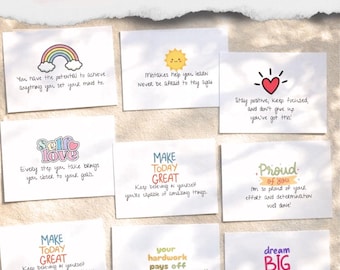 You have the potential to achieve
anything you set your mind to.
Mistakes help you learn
never be afraid to try again
Stay positive, keep focused,
and don't give up
you've got this
Self
love
Every step you take brings
you closer to your goals.
MAKE
TODAY
GREAT
Keep believing in yourself
you're capable of amazing things.
Proud
of you
I'm so proud of your
effort and determination
well done!
MAKE
TODAY
GREAT
Keep believing in yourself
your
hardwork
pays off
dream
BIG